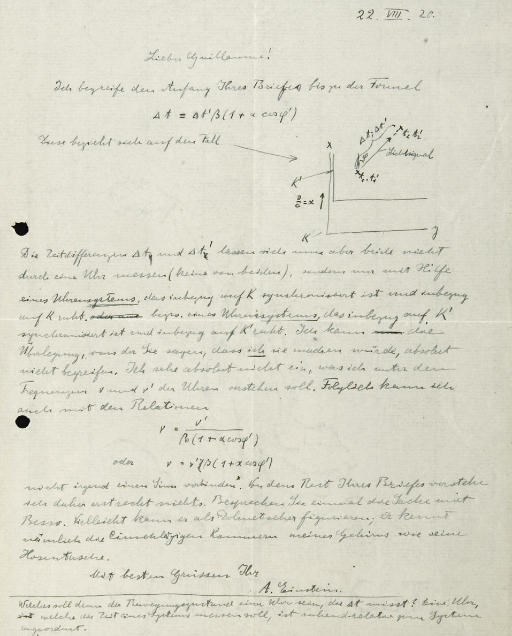 22. VIII. 20.
Lieber Guillaume!
Ich begreife den Anfang Ihres Briefes bis zu der Formel
Δt = Δt'β(1 + α cosφ')
Diese bezieht sich auf den Fall
x
Δt, Δt'
t₂, t₂'
Lichtsignal
t₁, t₁'
K'
v/c = α
K
y
Die Zeitdifferenzen Δt und Δt' lassen sich nun aber beide nicht
durch eine Uhr messen (keine von beiden), sondern nur mit Hilfe
eines Uhrensystems, das inbezug auf K synchronisiert ist und inbezug
auf K ruht. bezw. eines Uhrensystems, das inbezug auf K'
synchronisiert ist und inbezug auf K' ruht. Ich kann die
Überlegung, von der Sie sagen, dass ich sie machen würde, absolut
nicht begreifen. Ich sehe absolut nicht ein, was ich unter den
Frequenzen ν und ν' der Uhren verstehen soll. Folglich kann ich
auch mit den Relationen
ν = ν' / β(1 + α cosφ')
oder ν = ν'β(1 + α cosφ')
nicht irgend einen Sinn verbinden. In dem Rest Ihres Briefes verstehe
ich daher erst recht nichts. Besprechen Sie einmal die Sache mit
Besso. Vielleicht kann er als Dolmetscher figurieren; er kennt
nämlich die einschlägigen Kammern meines Gehirns wie seine
Hosentasche.
Mit besten Grüssen Ihr
A. Einstein.
Welches soll denn der Bewegungszustand einer Uhr sein, die Δt misst? Eine Uhr,
welche die Zeit eines Systems messen soll, ist zum System
angeordnet.